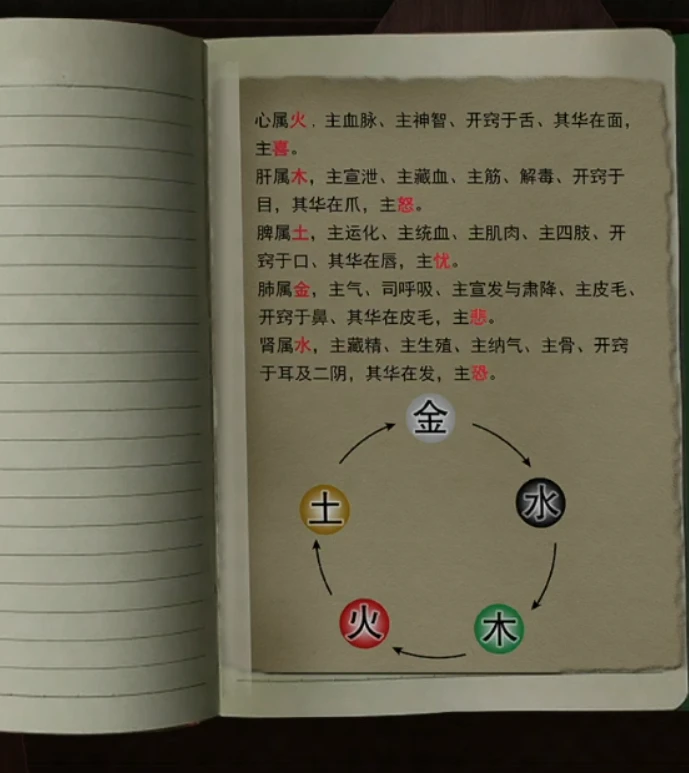 心属火，主血脉、主神智、开窍于舌、其华在面，
主喜。
肝属木，主宣泄、主藏血、主筋、解毒、开窍于
目，其华在爪，主怒。
脾属土，主运化、主统血、主肌肉、主四肢、开
窍于口、其华在唇，主忧。
肺属金，主气、司呼吸、主宣发与肃降、主皮毛、
开窍于鼻、其华在皮毛，主悲。
肾属水，主藏精、主生殖、主纳气、主骨、开窍
于耳及二阴，其华在发，主恐。
金
土 水
火 木